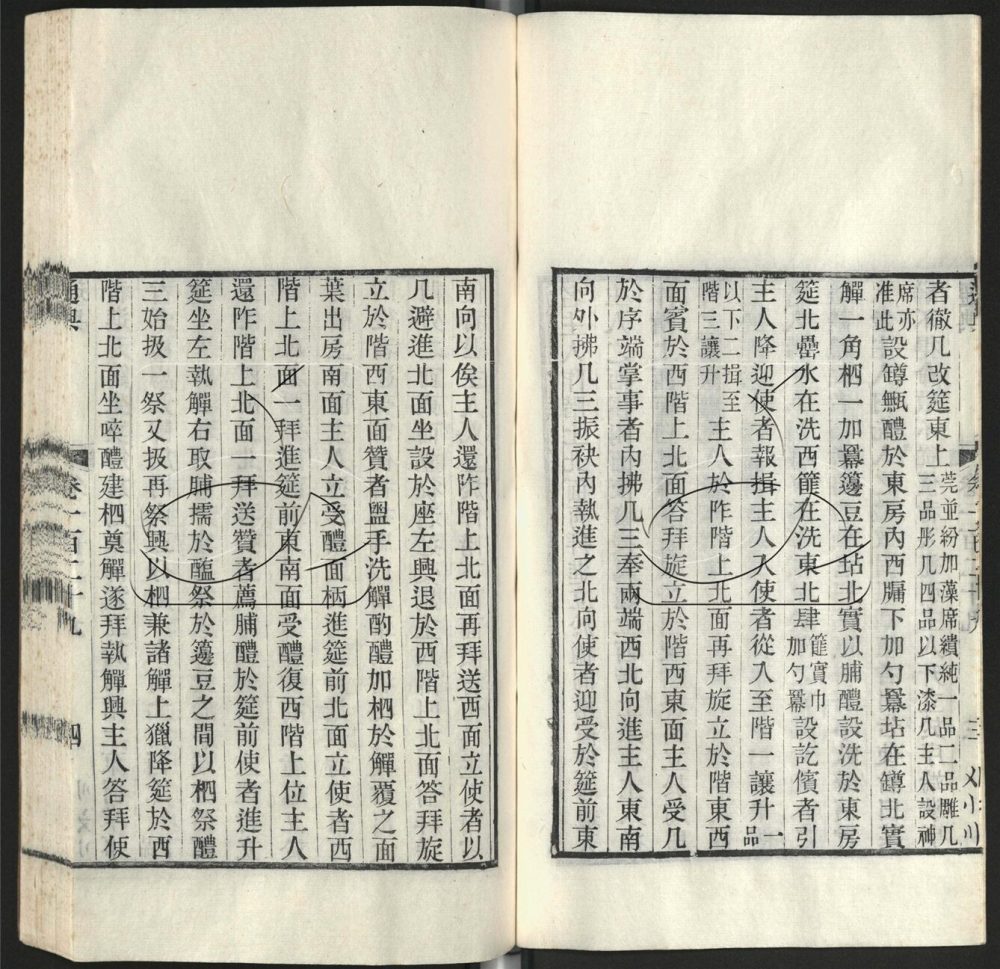 者徹几改筵東上莞並紛加藻席繢純一品二品雕几
三品彤几四品以下漆几主人設神
席亦
准此設罇甒醴於東房內西牖下加勺羃坫在罇北實
觶一角柶一加羃籩豆在坫北實以脯醴設洗於東房
筵北罍水在洗西篚在洗東北肆篚實巾
加勺羃設訖儐者引
主人降迎使者報揖主人入使者從入至階一讓升一
品
以下二揖至
階三讓升主人於阼階上北面再拜旋立於階東西
面賓於西階上北面答拜旋立於階西東面主人受几
於序端掌事者內拂几三奉兩端西北向進主人東南
向外拂几三振袂內執進之北向使者迎受於筵前東
三
南向以俟主人還阼階上北面再拜送西面立使者以
几避進北面坐設於座左興退於西階上北面答拜旋
立於階西東面贊者盥手洗觶酌醴加柶於觶覆之面
葉出房南面主人立受醴面柄進筵前北面立使者西
階上北面一拜進筵前東南面受醴復西階上位主人
還阼階上北面一拜送贊者薦脯醴於筵前使者進升
筵坐左執觶右取脯擩於醢祭於籩豆之間以柶祭醴
三始扱一祭又扱再祭興以柶兼諸觶上獵降筵於西
階上北面坐啐醴建柶奠觶遂拜執觶興主人答拜使
通典
卷一百二十九
四